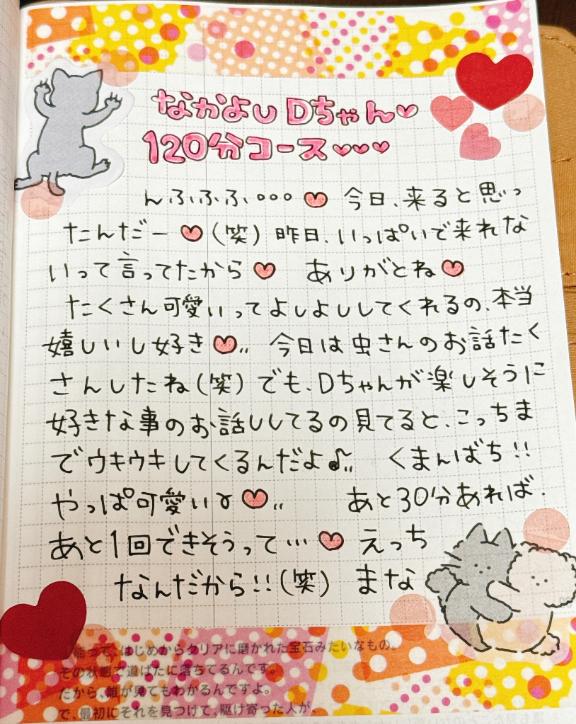 なかよしDちゃん♡
120分コース♡♡♡
んふふふ、。。。♡ 今日、来ると思っ
たんだー♡(笑)昨日、いっぱいで来れな
いって言ってたから♡ ありがとね♡
たくさん可愛いってよしよししてくれるの、本当
嬉しいし好き♡,, 今日は虫さんのお話たく
さんしたね(笑)でも、Dちゃんが楽しそうに
好きな事のお話ししてるの見てると、こっちま
でウキウキしてくるんだよ♪,, くまんばち!!
やっぱ可愛い♡,, あと30分あれば、
あと1回できそうって…♡ えっち
なんだから!!(笑) まな
って、はじめからクリアに磨かれた宝石みたいなもの。
その状態で道ばたに落ちてるんです。
だから、誰が見てもわかるんですよ。
で、最初にそれを見つけて、駆け寄った人が、